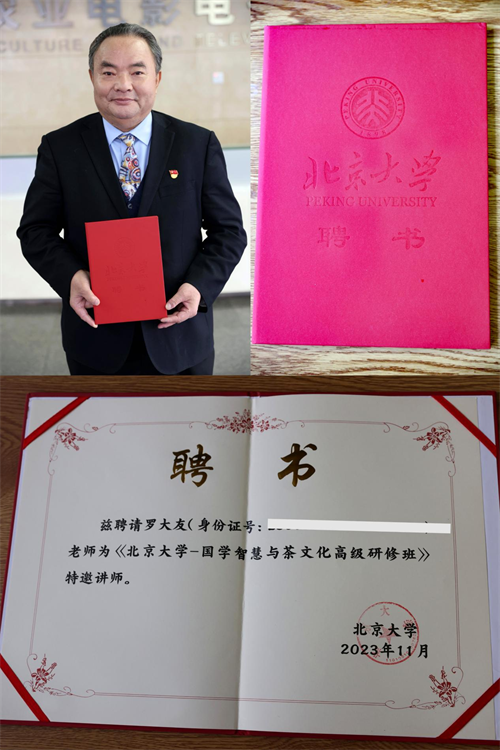 业电影电
CULTURE
AND
TELEV
PEKING UNIVERSITY
1898
北京大学
PEKING UNIVERSITY
聘 书
聘 书
兹聘请罗大友(身份证号:
老师为《北京大学-国学智慧与茶文化高级研修班》
特邀讲师。
北京大学
2023年11月